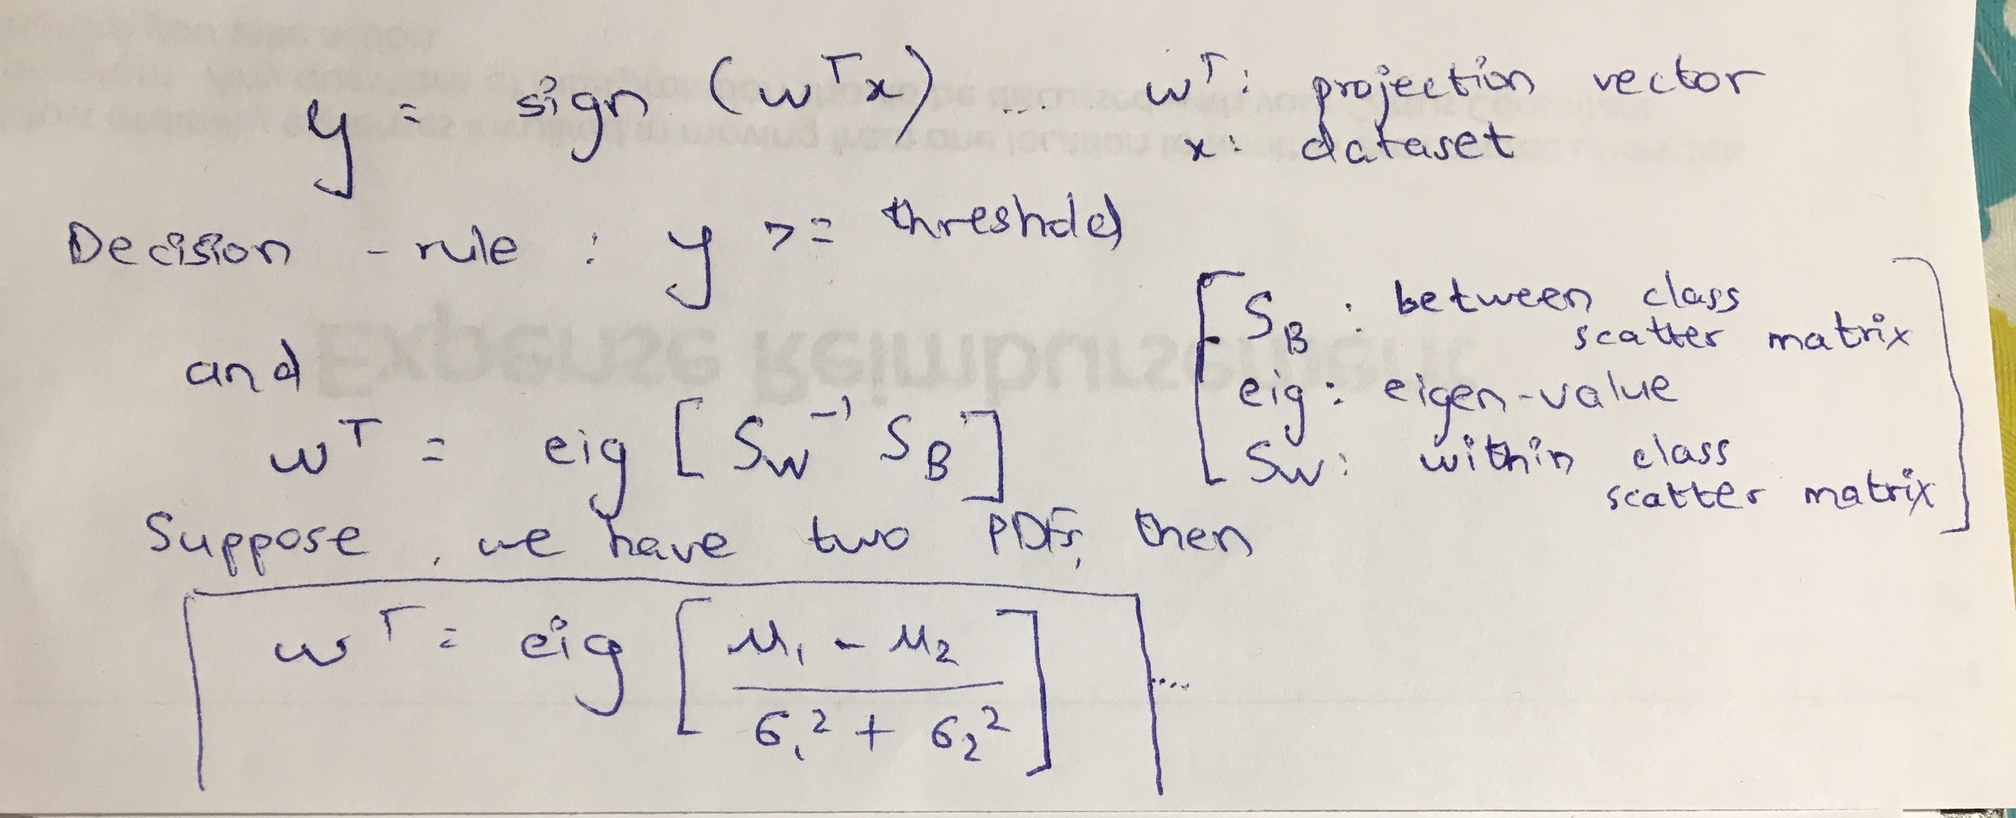 y = sign (wᵀx) ... wᵀ: projection vector
x: dataset
Decision - rule : y >= threshold
and
wᵀ = eig [ S_W⁻¹ S_B ]
[ S_B : between class
scatter matrix
eig: eigen-value
Sw: within class
scatter matrix ]
Suppose, we have two PDFs, then
wᵀ = eig [ (μ₁ - μ₂) / (σ₁² + σ₂²) ] ....
Expense Reimbursement